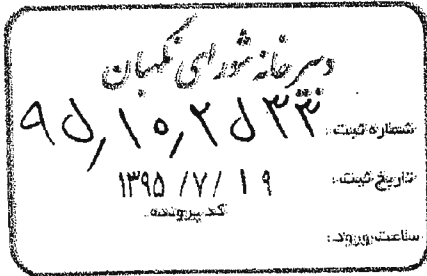 دبیرخانه شورای نگهبان
شماره ثبت: ۹۵٫۱۰٫۲۵۳۳
تاریخ ثبت: ۱۳۹۵/۷/۱۹
کد پرونده:
ساعت ورود: